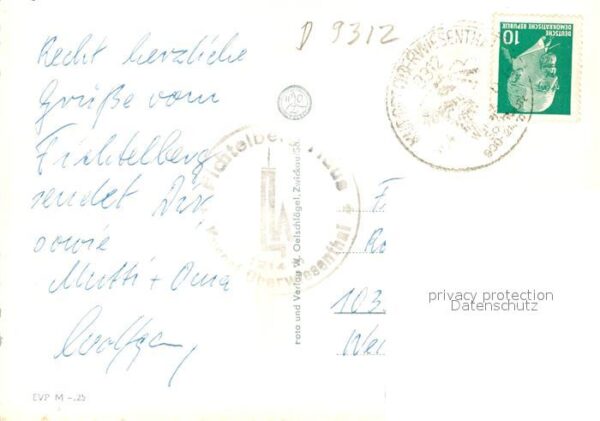 Recht herzliche
Grüße vom
Fichtelberg
sendet Dir,
sowie
Mutti + Oma
Wolfgang
EVP M -,25
D 9312
Fichtelberghaus
1214 m
Kurort Oberwiesenthal
Foto und Verlag W. Oelschlägel, Zwickau/Sa.
KURORT OBERWIESENTHAL
9312
DEUTSCHE
DEMOKRATISCHE REPUBLIK
10
103
privacy protection
Datenschutz